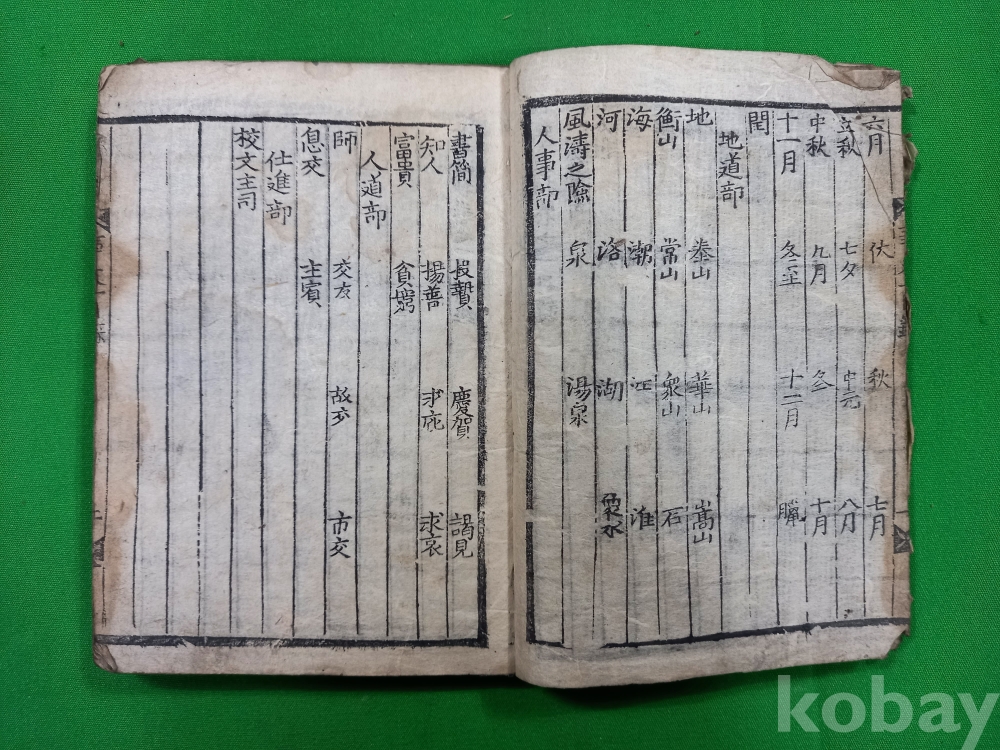 六月 伏 秋 七月
立秋 七夕 中元 八月
中秋 九月 冬 十月
十一月 冬至 十二月 臘
閏
地道部
地 泰山 華山 嵩山
衡山 常山 衆山 石
海 潮 江 淮
河 洛 湖
風濤之險 泉 湯泉
人事部
書簡 投贄 慶賀 謁見
知人 揚善 求哀
富貴 貧窮
人道部
師 交友 故交 市交
息交 主賓
仕進部
校文主司
kobay